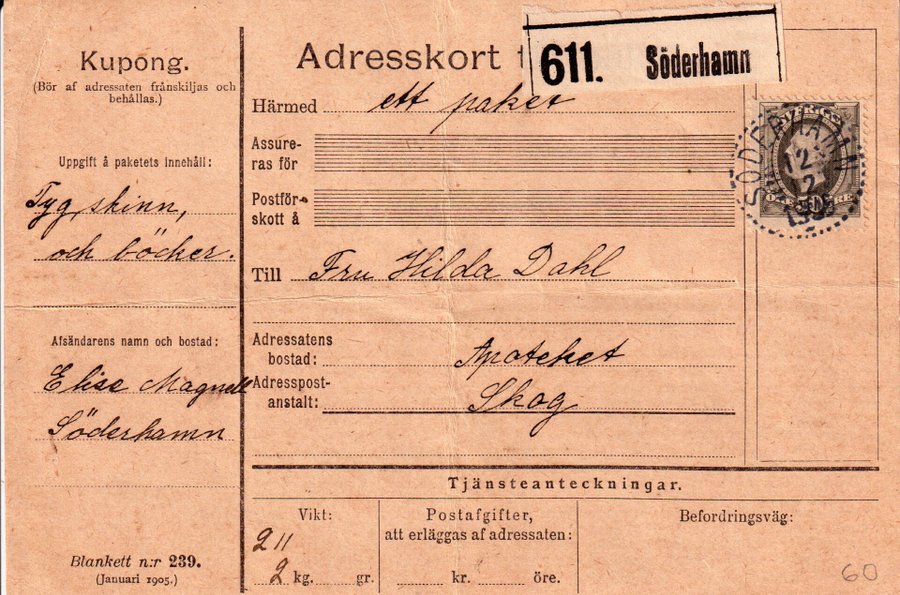 Kupong.
(Bör af adressaten frånskiljas och
behållas.)
Uppgift å paketets innehåll:
Tyg, skinn,
och böcker.
Afsändarens namn och bostad:
Elise Magnell
Söderhamn
Blankett n:r 239.
(Januari 1905.)
Adresskort
611. Söderhamn
Härmed ett paket
Assure-
ras för
Postför-
skott å
Till Fru Hilda Dahl
Adressatens
bostad: Apoteket
Adresspost-
anstalt: Skog
SÖDERHAMN
12
2
Tjänsteanteckningar.
Vikt:
211
2 kg. gr.
Postafgifter,
att erläggas af adressaten:
kr. öre.
Befordringsväg:
60